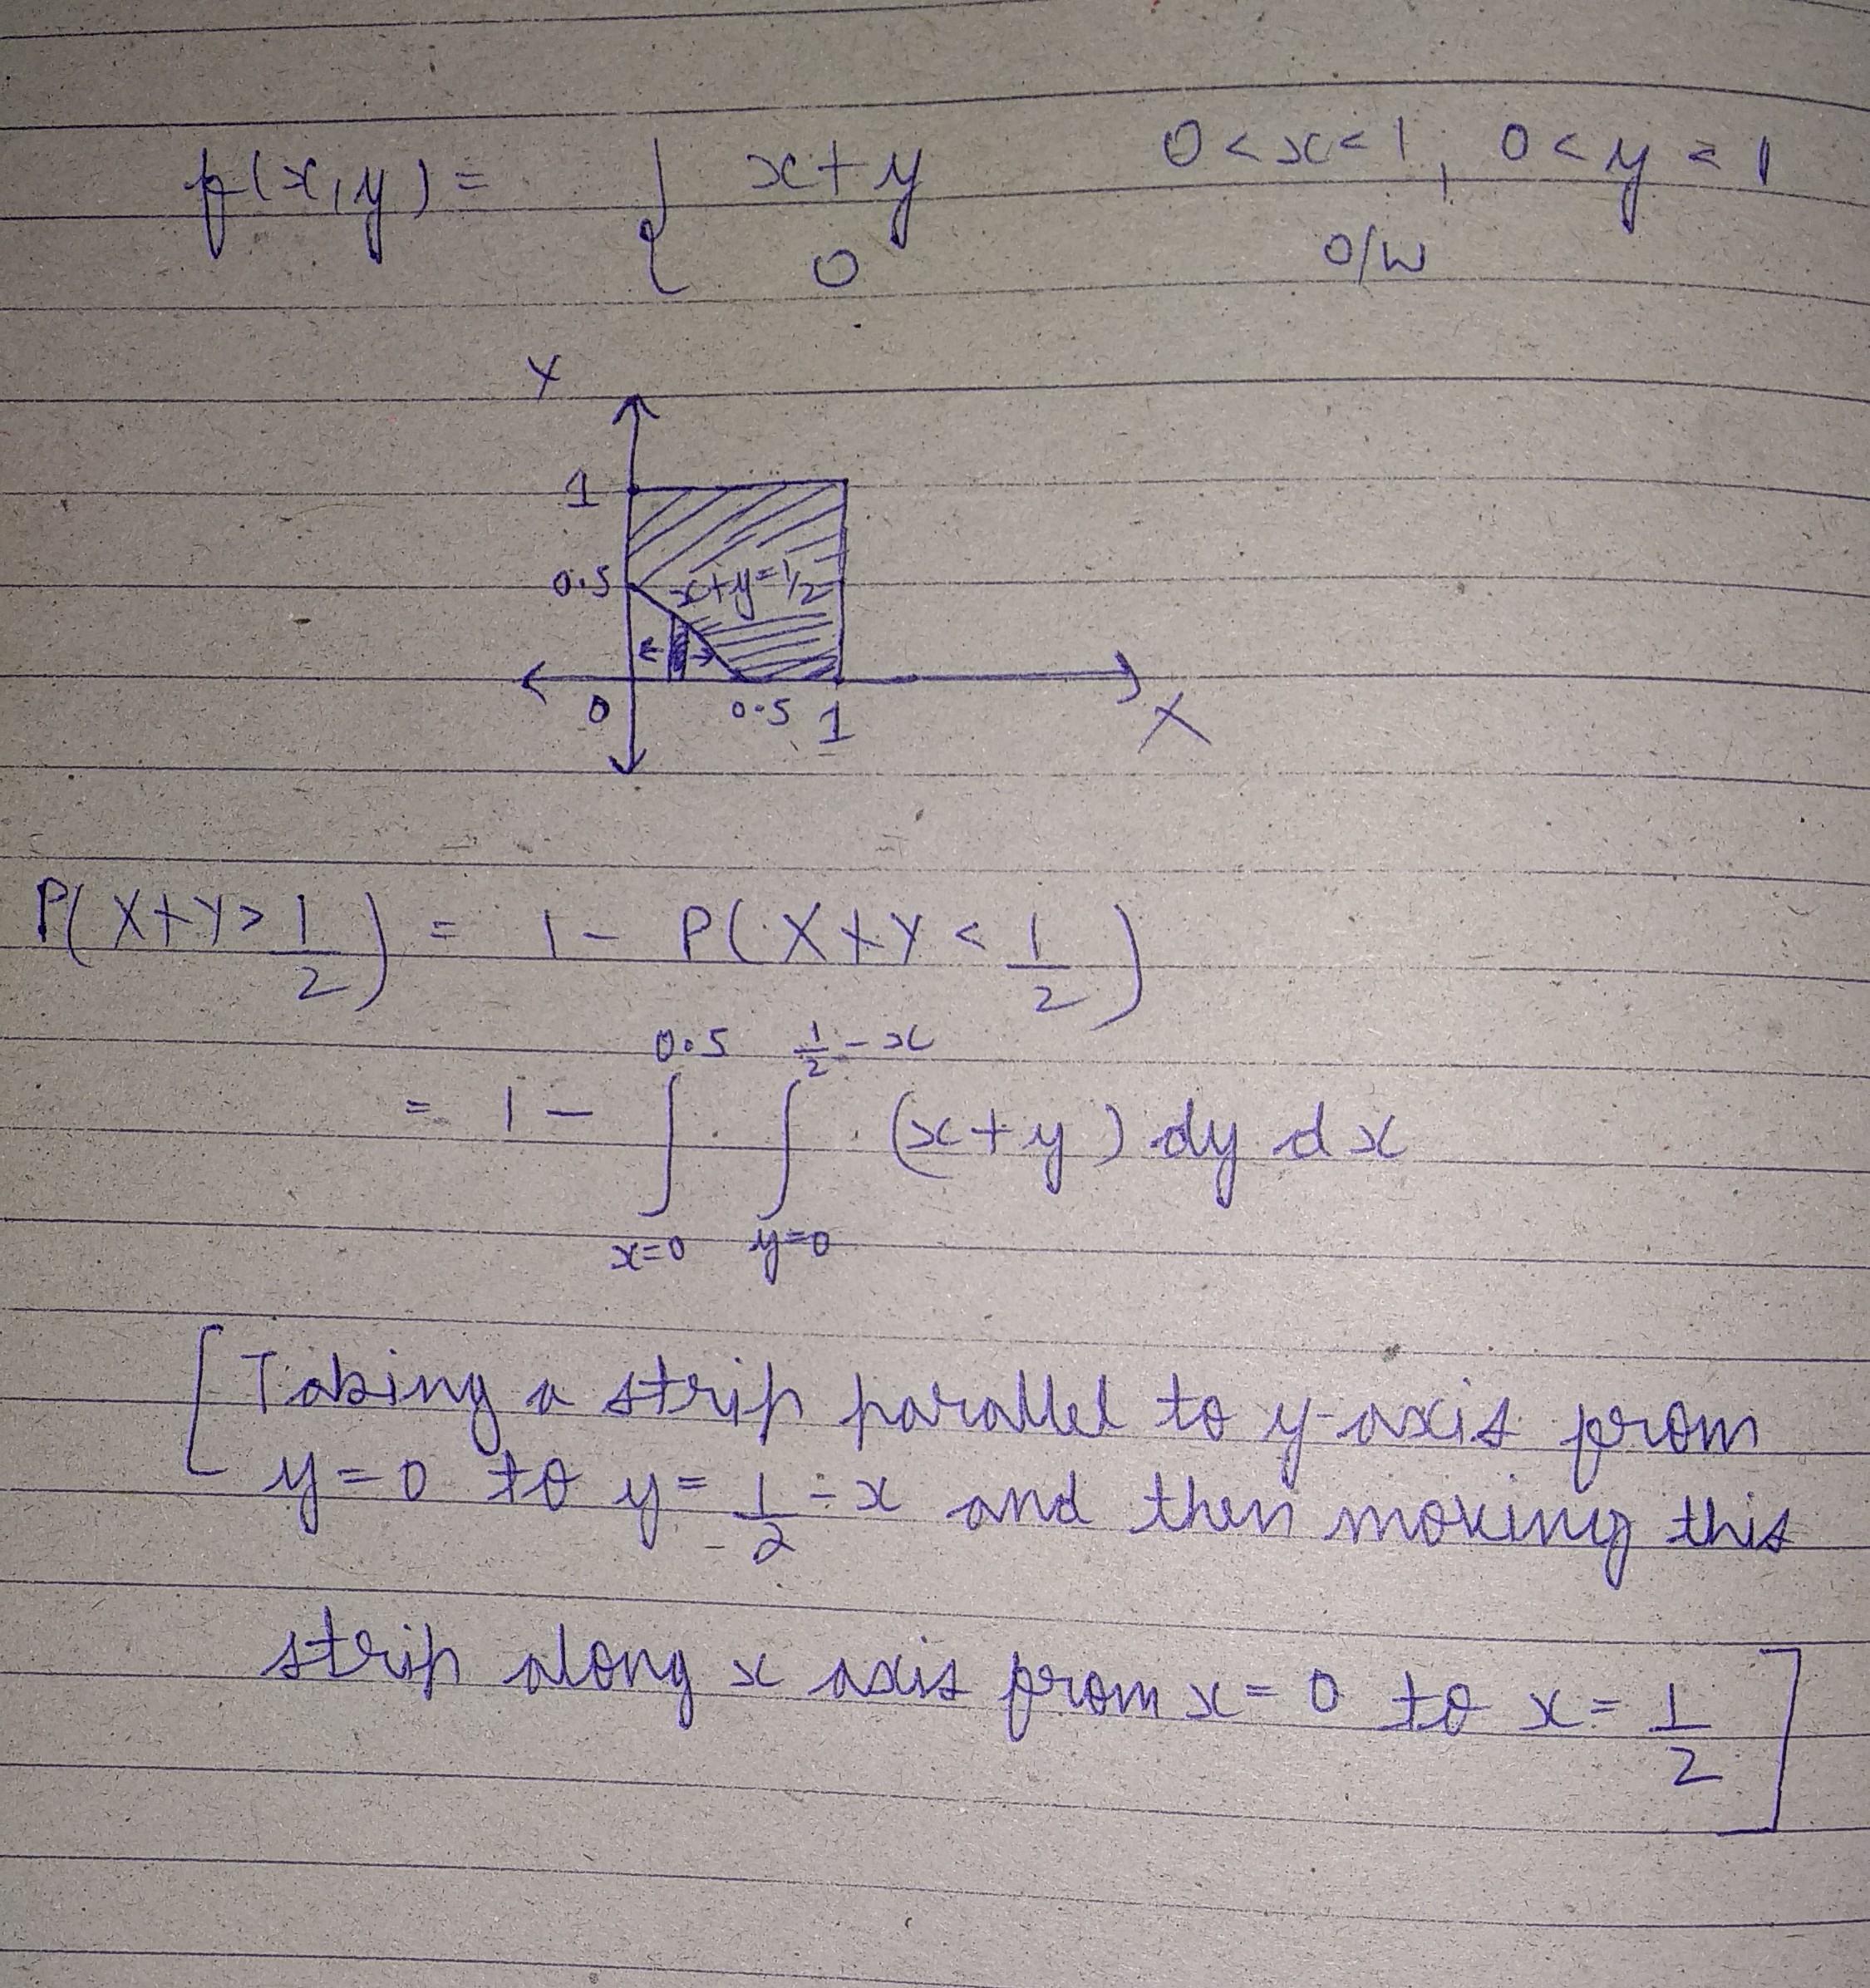 f(x,y) = { x+y 0<x<1, 0<y<1
0 o/w
Y
1
0.5 x+y=1/2
0 0.5 1 X
P(X+Y>1/2) = 1 - P(X+Y<1/2)
= 1 - ∫_{x=0}^{0.5} ∫_{y=0}^{1/2-x} (x+y) dy dx
[Taking a strip parallel to y-axis from
y=0 to y=1/2-x and then moving this
strip along x axis from x=0 to x=1/2]